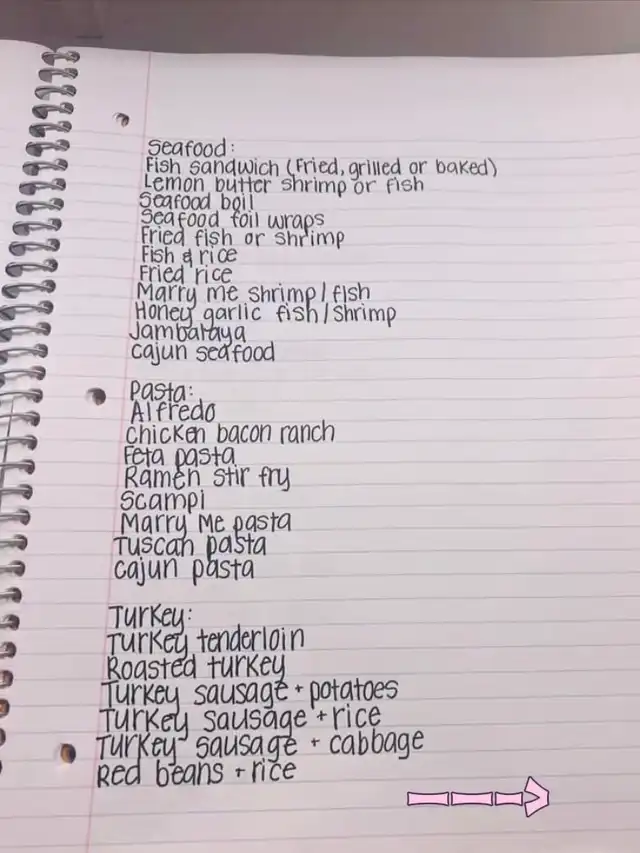 Seafood:
Fish sandwich (Fried, grilled or baked)
Lemon butter shrimp or fish
Seafood boil
Seafood foil wraps
Fried fish or shrimp
Fish & rice
Fried rice
Marry me shrimp/fish
Honey garlic fish/shrimp
Jambalaya
Cajun seafood
Pasta:
Alfredo
Chicken bacon ranch
Feta pasta
Ramen stir fry
Scampi
Marry Me pasta
Tuscan pasta
Cajun pasta
Turkey:
Turkey tenderloin
Roasted turkey
Turkey sausage + potatoes
Turkey sausage + rice
Turkey sausage + cabbage
Red beans + rice